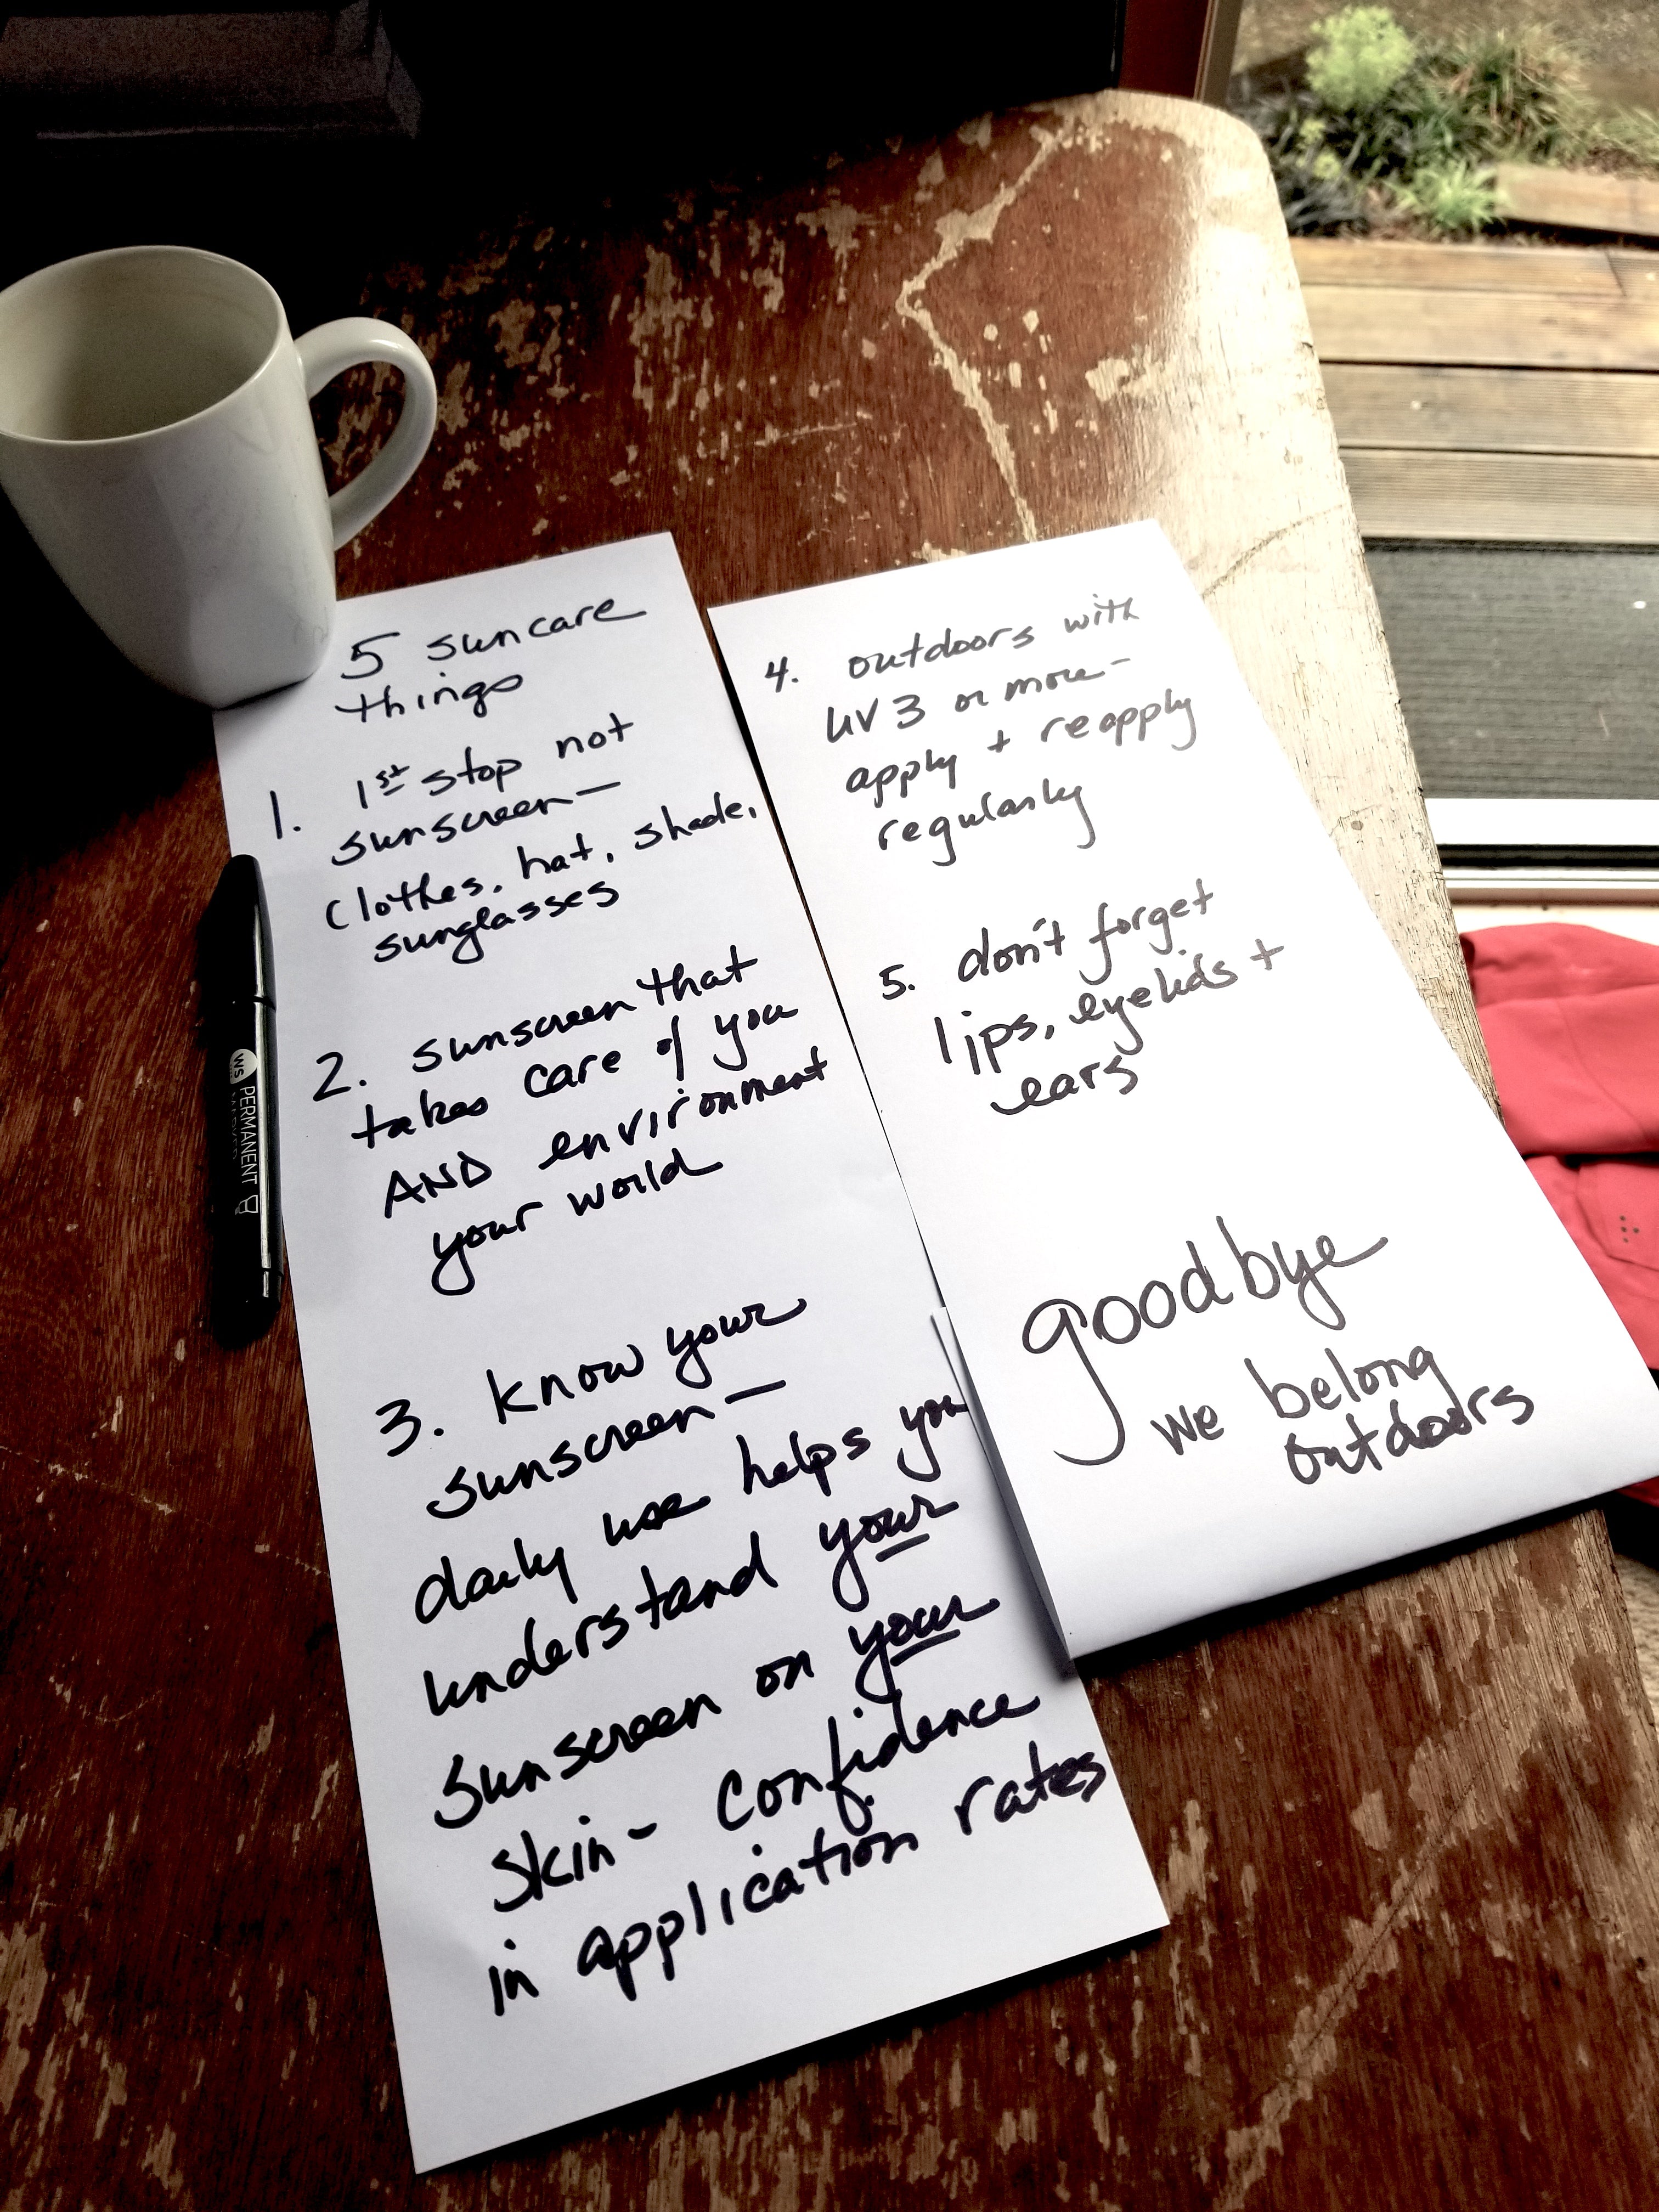 5 suncare
things
1. 1st stop not
sunscreen—
clothes, hat, shade,
sunglasses
2. sunscreen that
takes care of you
AND environment
your world
3. know your
sunscreen—
daily use helps you
understand your
sunscreen on your
skin - confidence
in application rates
4. outdoors with
UV 3 or more -
apply + reapply
regularly
5. don't forget
lips, eyelids +
ears
goodbye
we belong
outdoors
WS PERMANENT
MARKER